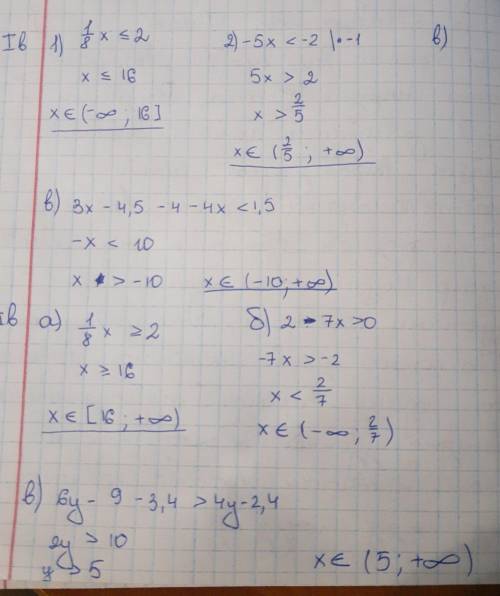 Iв 1) 1/8 x ≤ 2
x ≤ 16
x ∈ (-∞ ; 16]
2) -5x < -2 |· -1
5x > 2
x > 2/5
x ∈ (2/5 ; +∞)
в)
в) 3x - 4,5 - 4 - 4x < 1,5
-x < 10
x > -10
x ∈ (-10; +∞)
Iв а) 1/8 x ≥ 2
x ≥ 16
x ∈ [16 ; +∞)
б) 2 - 7x > 0
-7x > -2
x < 2/7
x ∈ (-∞ ; 2/7)
в) 6y - 9 - 3,4 > 4y - 2,4
2y > 10
y > 5
x ∈ (5 ; +∞)